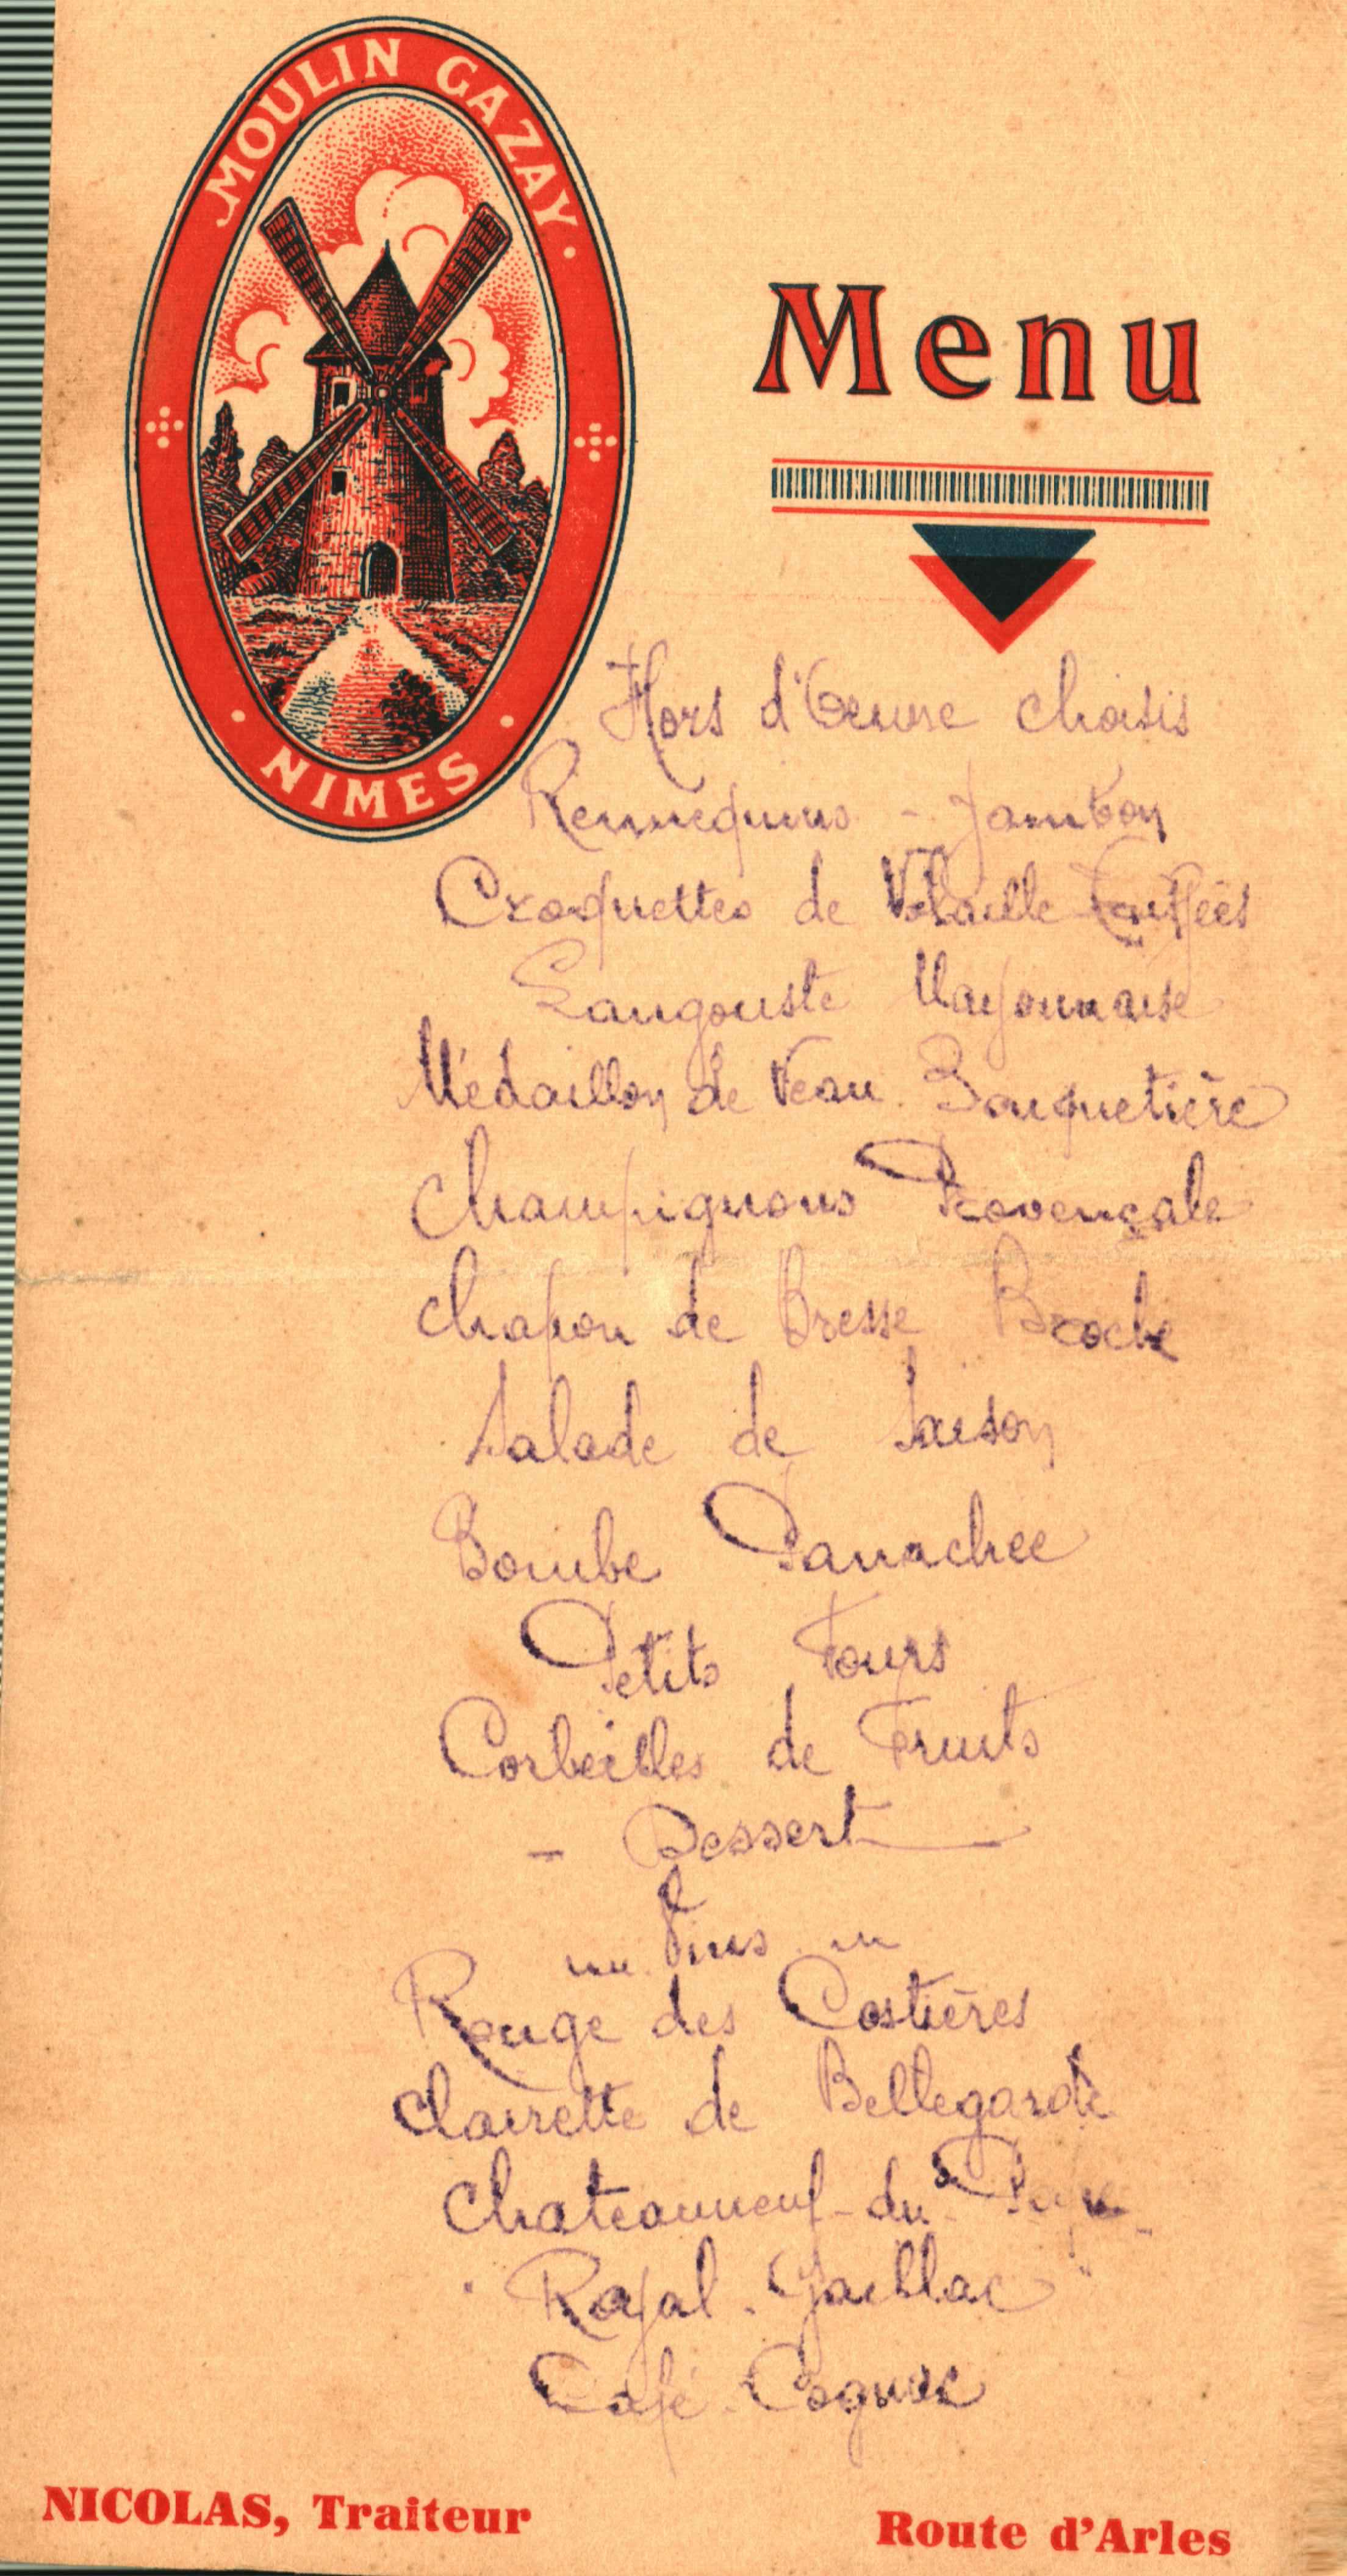 MOULIN GAZAY
NIMES
Menu
Hors d'Oeuvre choisis
- Jambon
Croquettes de Volaille Truffées
Langouste Mayonnaise
Médaillon de Veau Bouquetière
Champignons Provençale
Chapon de Bresse Broche
Salade de Saison
Bombe Panachée
Petits Fours
Corbeilles de Fruits
- Dessert -
Vins
Rouge des Costières
Clairette de Bellegarde
Chateauneuf-du-Pape
Royal-Gaillac
Café-Cognac
NICOLAS, Traiteur
Route d'Arles